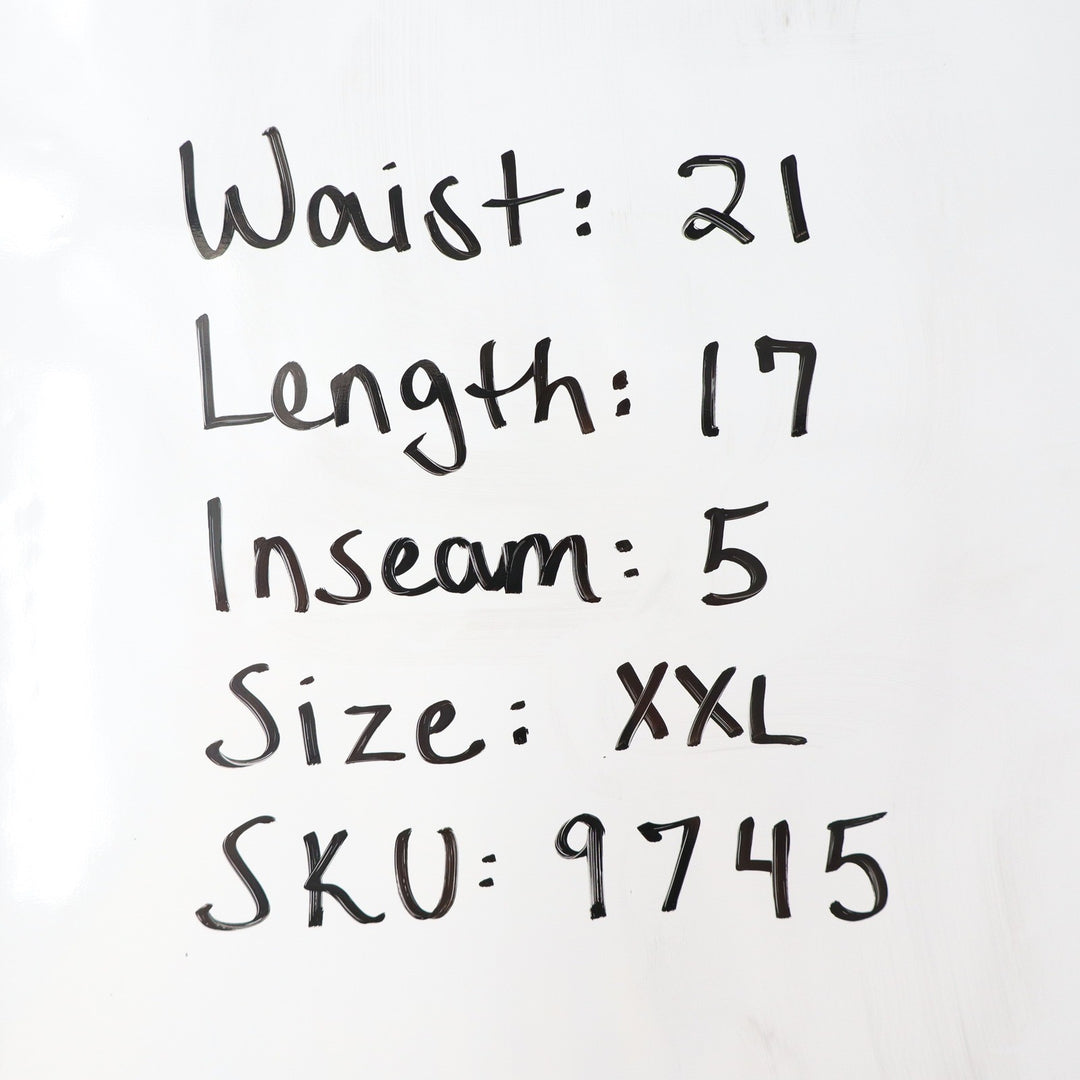 Waist: 21
Length: 17
Inseam: 5
Size: XXL
SKU: 9745